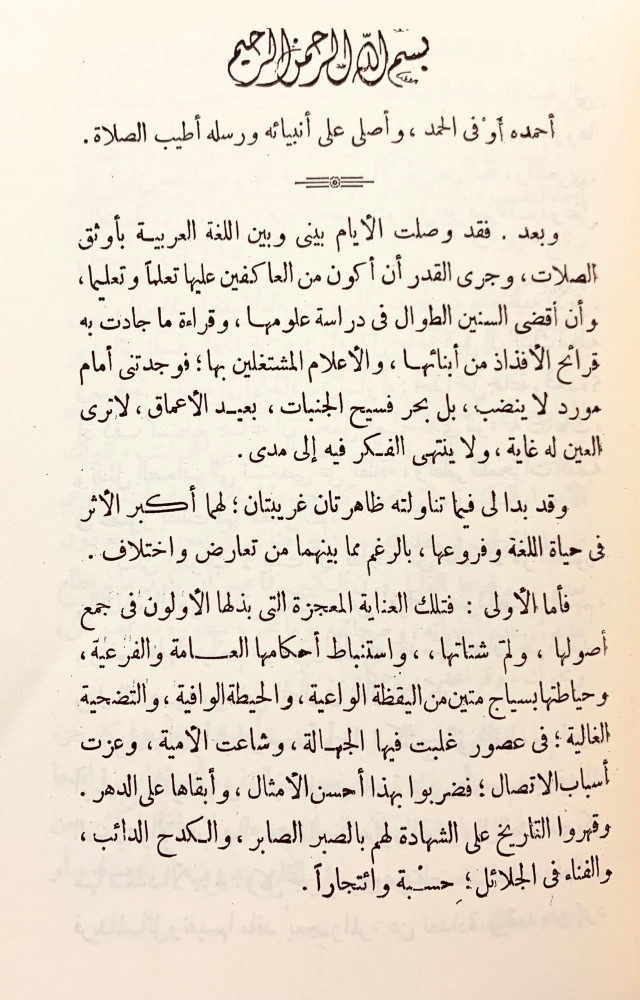 بسم الله الرحمن الرحيم
أحمده أوْفى الحمد ، وأصلى على أنبيائه ورسله أطيب الصلاة .
وبعد . فقد وصلت الأيام بينى وبين اللغة العربيـة بأوثق
الصلات ، وجرى القدر أن أكون من العاكفين عليها تعلماً وتعليما،
وأن أقضى السنين الطوال فى دراسة علومهـا ، وقراءة ما جادت به
قرائح الأفذاذ من أبنائهـا ، والأعلام المشتغلين بها ؛ فوجدتنى أمام
مورد لا ينضب ، بل بحر فسيح الجنبات ، بعيـد الأعماق ، لا ترى
العين له غاية ، ولا ينتهى الفـكر فيه إلى مدى .
وقد بدا لى فيما تناولته ظاهرتان غريبتان ؛ لهما أكبر الأثر
فى حياة اللغة وفروعها ، بالرغم مما بينهما من تعارض واختلاف .
فأما الأولى : فتلك العناية المعجزة التى بذلها الأولون فى جمع
أصولها ، ولمّ شتاتها ، ، واستنباط أحكامها العــامة والفرعية ،
وحياطتها بسياج متين من اليقظة الواعية ، والحيطة الوافية ، والتضحية
الغالية ؛ فى عصور غلبت فيها الجهـالة ، وشاعت الأمية ، وعزت
أسباب الاتصال ؛ فضربوا بهذا أحسن الأمثال ، وأبقاها على الدهر .
وقهروا التاريخ على الشهادة لهم بالصبر الصابر ، والـكدح الدائب ،
والفناء فى الجلائل ؛ حِسْبة وائتجاراً .